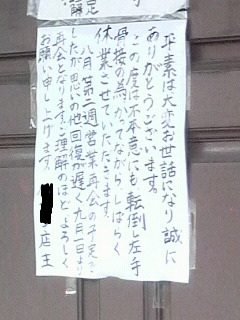 平素は大変お世話になり誠に
ありがとうございます。
この度は不本意にも転倒し左手
骨接の為、かってながら、しばらく
休業させていただきます。
八月第二週営業再会の予定で
したが思いの他回復が遅く九月一日より
再会となります。ご理解のほどよろしく
お願い申し上げます。
店主